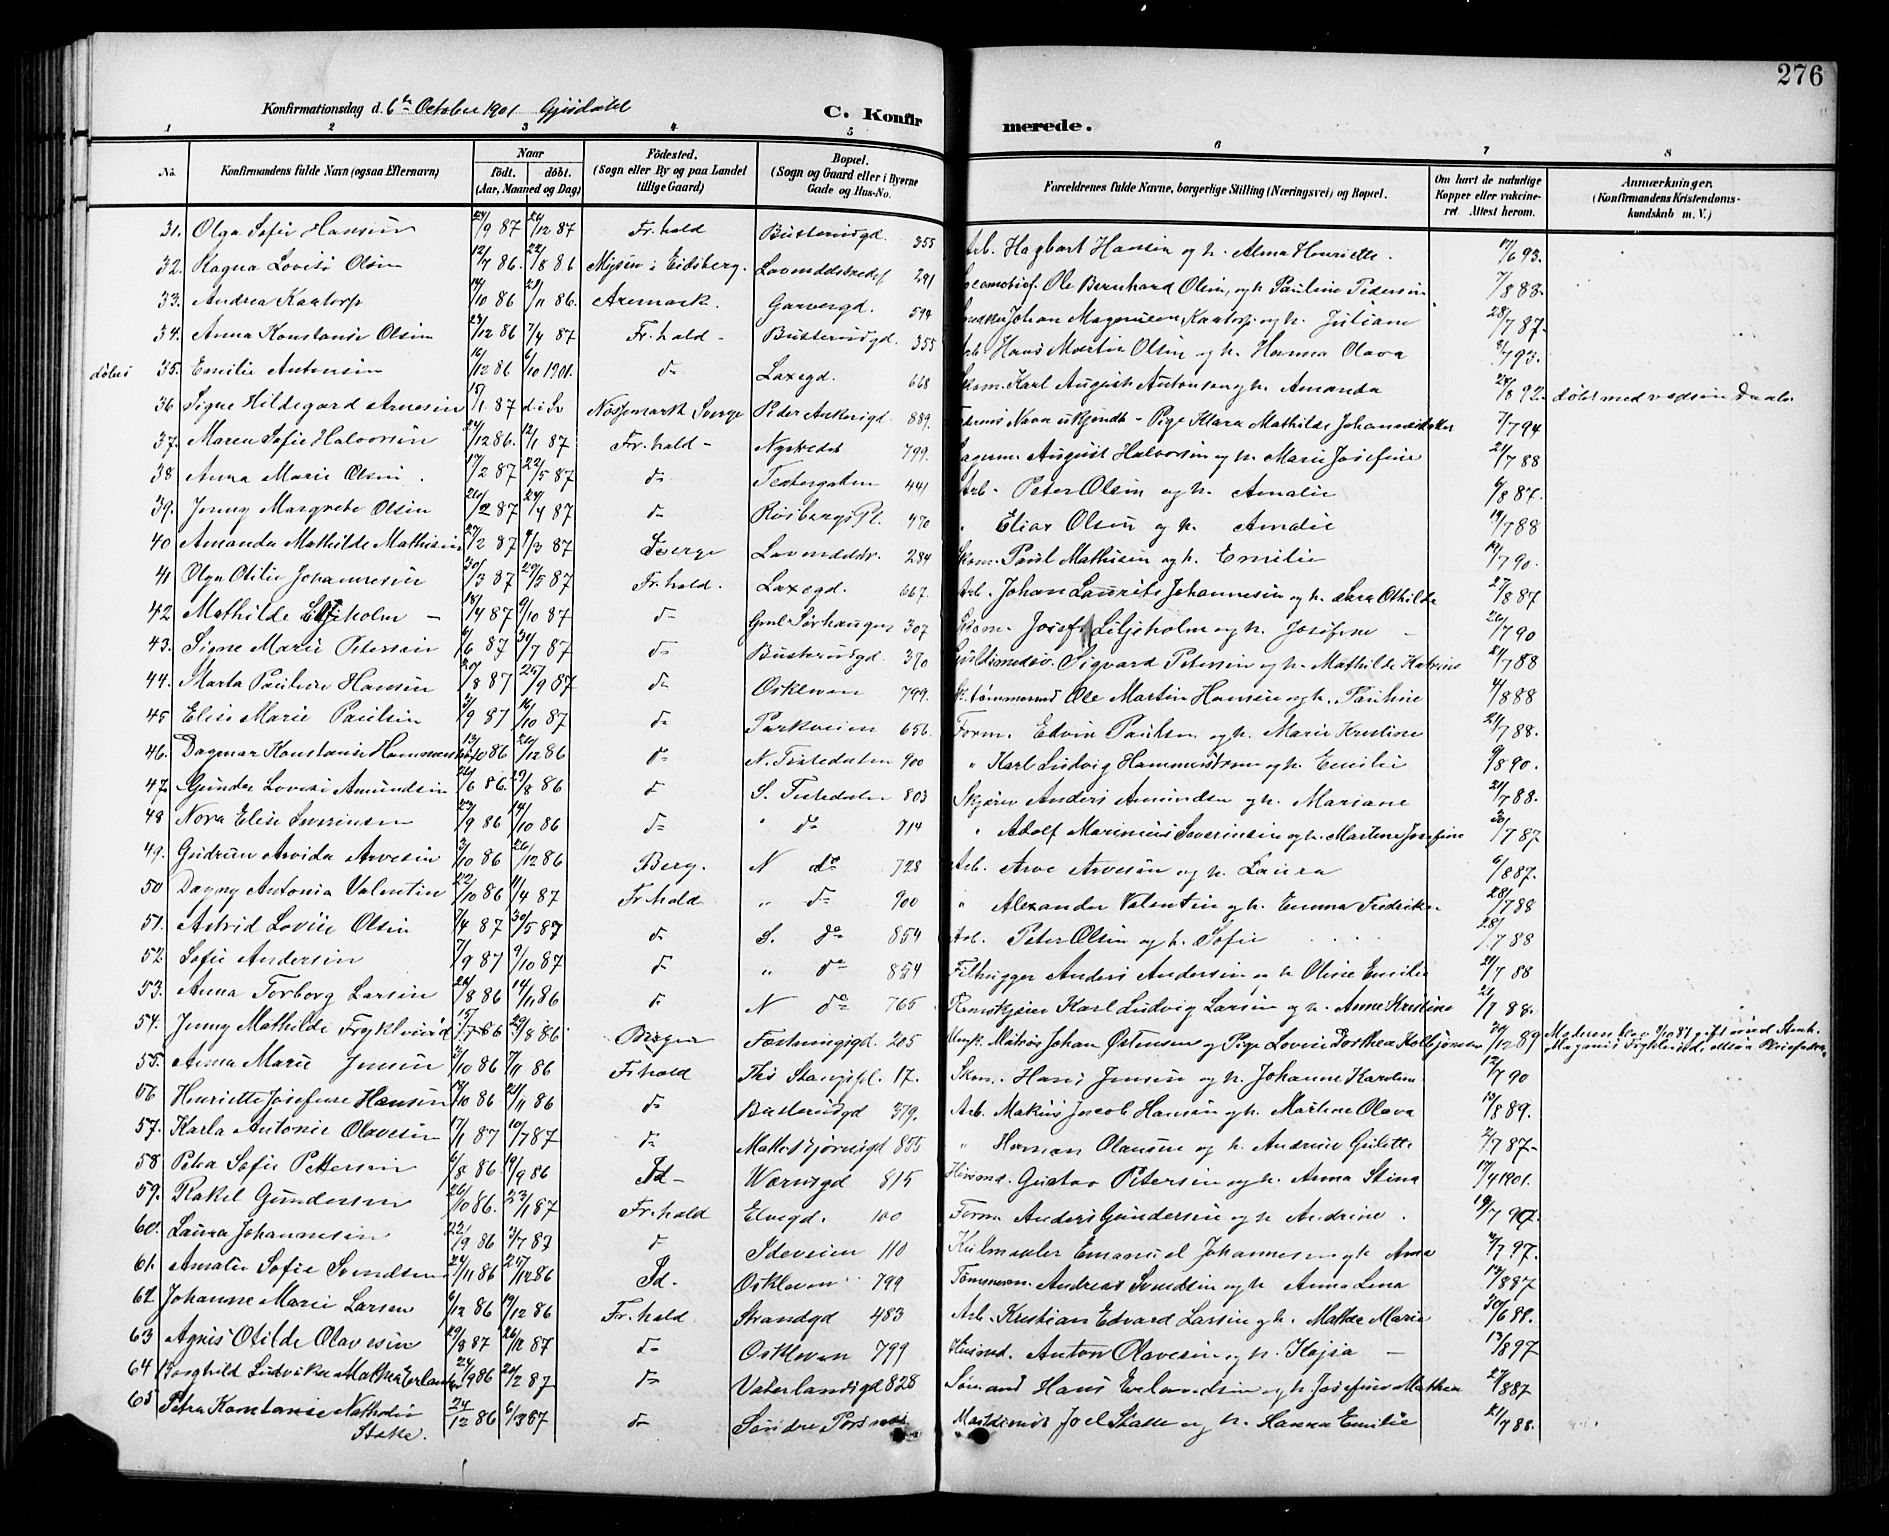 276
Konfirmationsdag d. 6te October 1901
C. Konfirmerede.
1 2 3 4 5 6 7 8
No.
Konfirmandens fulde Navn (ogsaa Efternavn)
Naar
født. døbt.
(Aar, Maaned og Dag)
Fødested.
(Sogn eller By og paa Landet
tillige Gaard)
Bopæl.
(Sogn og Gaard eller i Byerne
Gade og Hus-No.
Forældrenes fulde Navne, borgerlige Stilling (Næringsvei) og Bopæl.
Om havt de naturlige
Kopper eller vakcine-
ret Attest herom.
Anmærkninger.
(Konfirmandens Kristendoms-
kundskab m. V.)
31. Olga Sofie Hansen 24/9 87 26/12 87 Fr.hald Busterudgd. 355 Arb. Hagbart Hansen og h. Alma Henriette. 17/6 93.
32. Ragna Lovise Olsen 12/7 86. 22/8 86 Mysen i Eidsberg. 291 Ole Bernhard Olsen, og h. Pauline Pedersen 7/8 88.
33. Andrea Kaatorp 14/10 86 21/11 86. Aremark. Garvergd. 594 Johan Magnusen Kaatorp og h. Juliane 28/7 87.
34. Anna Konstanse Olsen 23/12 86 7/4 87 Fr.hald - Busterudgd. 355 Arb. Hans Martin Olsen og h. Hanna Olava 3/7 93.
døbes 35. Emilie Antonsen 16/12 86 6/10 1901. do Laxegd. 668 Skom. Karl August Antonsen og h. Amanda 24/8 92. døbt med vedsin Daab
36 Signe Hildegard Arnesen 15/1 87 d. i Sv Nösjemark Sverge Peder Ankersgd. 889. Faderens Navn ukjendt - Pige Klara Mathilde Johannesdatter 7/7 94
37. Maren Sofie Halvorsen 24/12 86. 12/1 87 Fr.hald - Nystedet 799. August Halvorsen og h. Marie Josefine 21/7 88
38 Anna Marie Olsen. 17/2 87 22/5 87 do Teatergaten 441 Arb. Peter Olsen og h. Amalie 6/8 87.
39. Jenny Margrete Olsen 26/2 87 24/4 87 do Rösbergs Pl. 470 " Elias Olsen og h. Amalie 19/7 88
40 Amanda Mathilde Mathisen 27/2 87 9/3 87 Sverge 284 Skom. Paul Mathisen og h. Emilie 19/7 90.
41 Olga Otilie Johannesen 30/3 87 29/5 87 Fr.hald. Laxegd. 667. Arb. Johan Laurits Johannesen og h. Sara Othilde 27/8 87
42 Mathilde Liljeholm - 18/4 87 9/10 87 do 307 Skom. Josef Liljeholm og h. Josefine - 26/7 90
43. Signe Marie Petersen 6/6 87 31/7 87 do Busterudgd. 370 Guldsmedsv. Sigvard Petersen og h. Mathilde Katrine 21/7 88
44. Marta Pauline Hansen 20/8 87 25/9 87 do Oskleven 799. Sk.tømmermd Ole Martin Hansen og h. Pauline 4/8 88
45 Elise Marie Paulsen 3/9 87 16/10 87 do Parkveien 656. Form. Edvin Paulsen og h. Marie Kristine 21/7 88.
46. Dagmar Konstanse Hammerström 13/10 86 26/12 86 do N. Tistedalen 900 " Karl Ludvig Hammerström og h. Emilie 9/8 90.
47. Gunda Lovise Amundsen 26/6 86. 29/8 86 do S. Tistedalen 803 Skjörer Anders Amundsen og h. Mariane 21/7 88.
48 Nora Elise Severinsen 22/9 86 14/10 86 do " do 714 " Adolf Marinius Severinsen og h. Martine Josefine 30/7 87
49. Gudrun Arvida Arvesen 3/10 86 26/12 86 Berg. N do 728 Arb. Arve Arvesen og h. Laura 6/8 87.
50 Dagny Antonia Valentin 22/10 86 11/4 87 Fr.hald " do 900 " Alexander Valentin og h. Emma Fredrikke 28/7 88
51. Astrid Lovise Olsen 7/4 87 30/5 87 do S. do 854 Arb. Peter Olsen og h. Sofie 28/7 88
52. Sofie Andersen 7/9 87 9/10 87 do " do 854 Filhugger Anders Andersen og h Oline Emilie 21/7 88
53. Anna Torborg Larsen 26/8 86 14/11 86 do N do 765 Remskjærer Karl Ludvig Larsen og h. Anne Kristine 21/7 88.
54. Jenny Mathilde Frykland 15/7 86 29/8 86. Bergen Fæstningsgd. 205 Ungk. Matros Johan Østensen og Pige Lovise Dorthea Kolbjørnsen 29/12 89 Moderen blev 9/10 87 gift med
55. Anna Marie Jensen 2/10 86 7/11 86 Fr.hald Ths Stangspl. 17. Skom. Hans Jensen og h. Johanne Karoline 12/7 90
56 Henriette Josefine Hansen 19/10 86 21/11 86 do Busterudgd 379. Arb. Makus Jacob Hansen og h. Martine Olava 13/8 89.
57. Karla Antonie Olavesen 17/1 87 10/7 87 do 855 " Herman Olausen og h. Andrine Gulette 2/7 87-
58 Petra Sofie Pettersen 6/8 86. 19/9 86 Id - Værnsgd 815 Gustav Petersen og h. Anna Stina 17/4 1901.
59. Rakel Gundersen 26/10 86. 23/1 87 Fr.hald Elvegd. 100 Form. Anders Gundersen og h Andrine. 18/7 92.
60. Laura Johannesen 22/9 86 3/7 87 do Ideveien 110 Kulmaaler Emanuel Johannesen og h. Anna 2/7 97.
61. Amalie Sofie Svendsen 24/11 86 25/12 86 Id. Oskleven 799 Tömmerm. Andreas Svendsen og h Anna Lena 13/8 87
62. Johanne Marie Larsen 6/12 86 19/12 86 Fr.hald Strandgd 483 Arb. Kristian Edvard Larsen og h. Mathde Marie 30/6 88.
63 Agnes Otilde Olavesen 29/8 87 26/12 87 do Oskleven 799 Anton Olavesen og h. Kajsa - 13/8 97
64 Borghild Ludvikke Mathea Erlandsen 24/9 86 20/2 87 do Vaterlandsgd 828 Sømand Hans Erlandsen og h. Josefine Mathea 27/8 87
65 Petra Konstanse Nathalie 24/12 86 6/3 87 do Søndre Joel Stake og h. Hanna Emilie 21/7 88.
Stake.